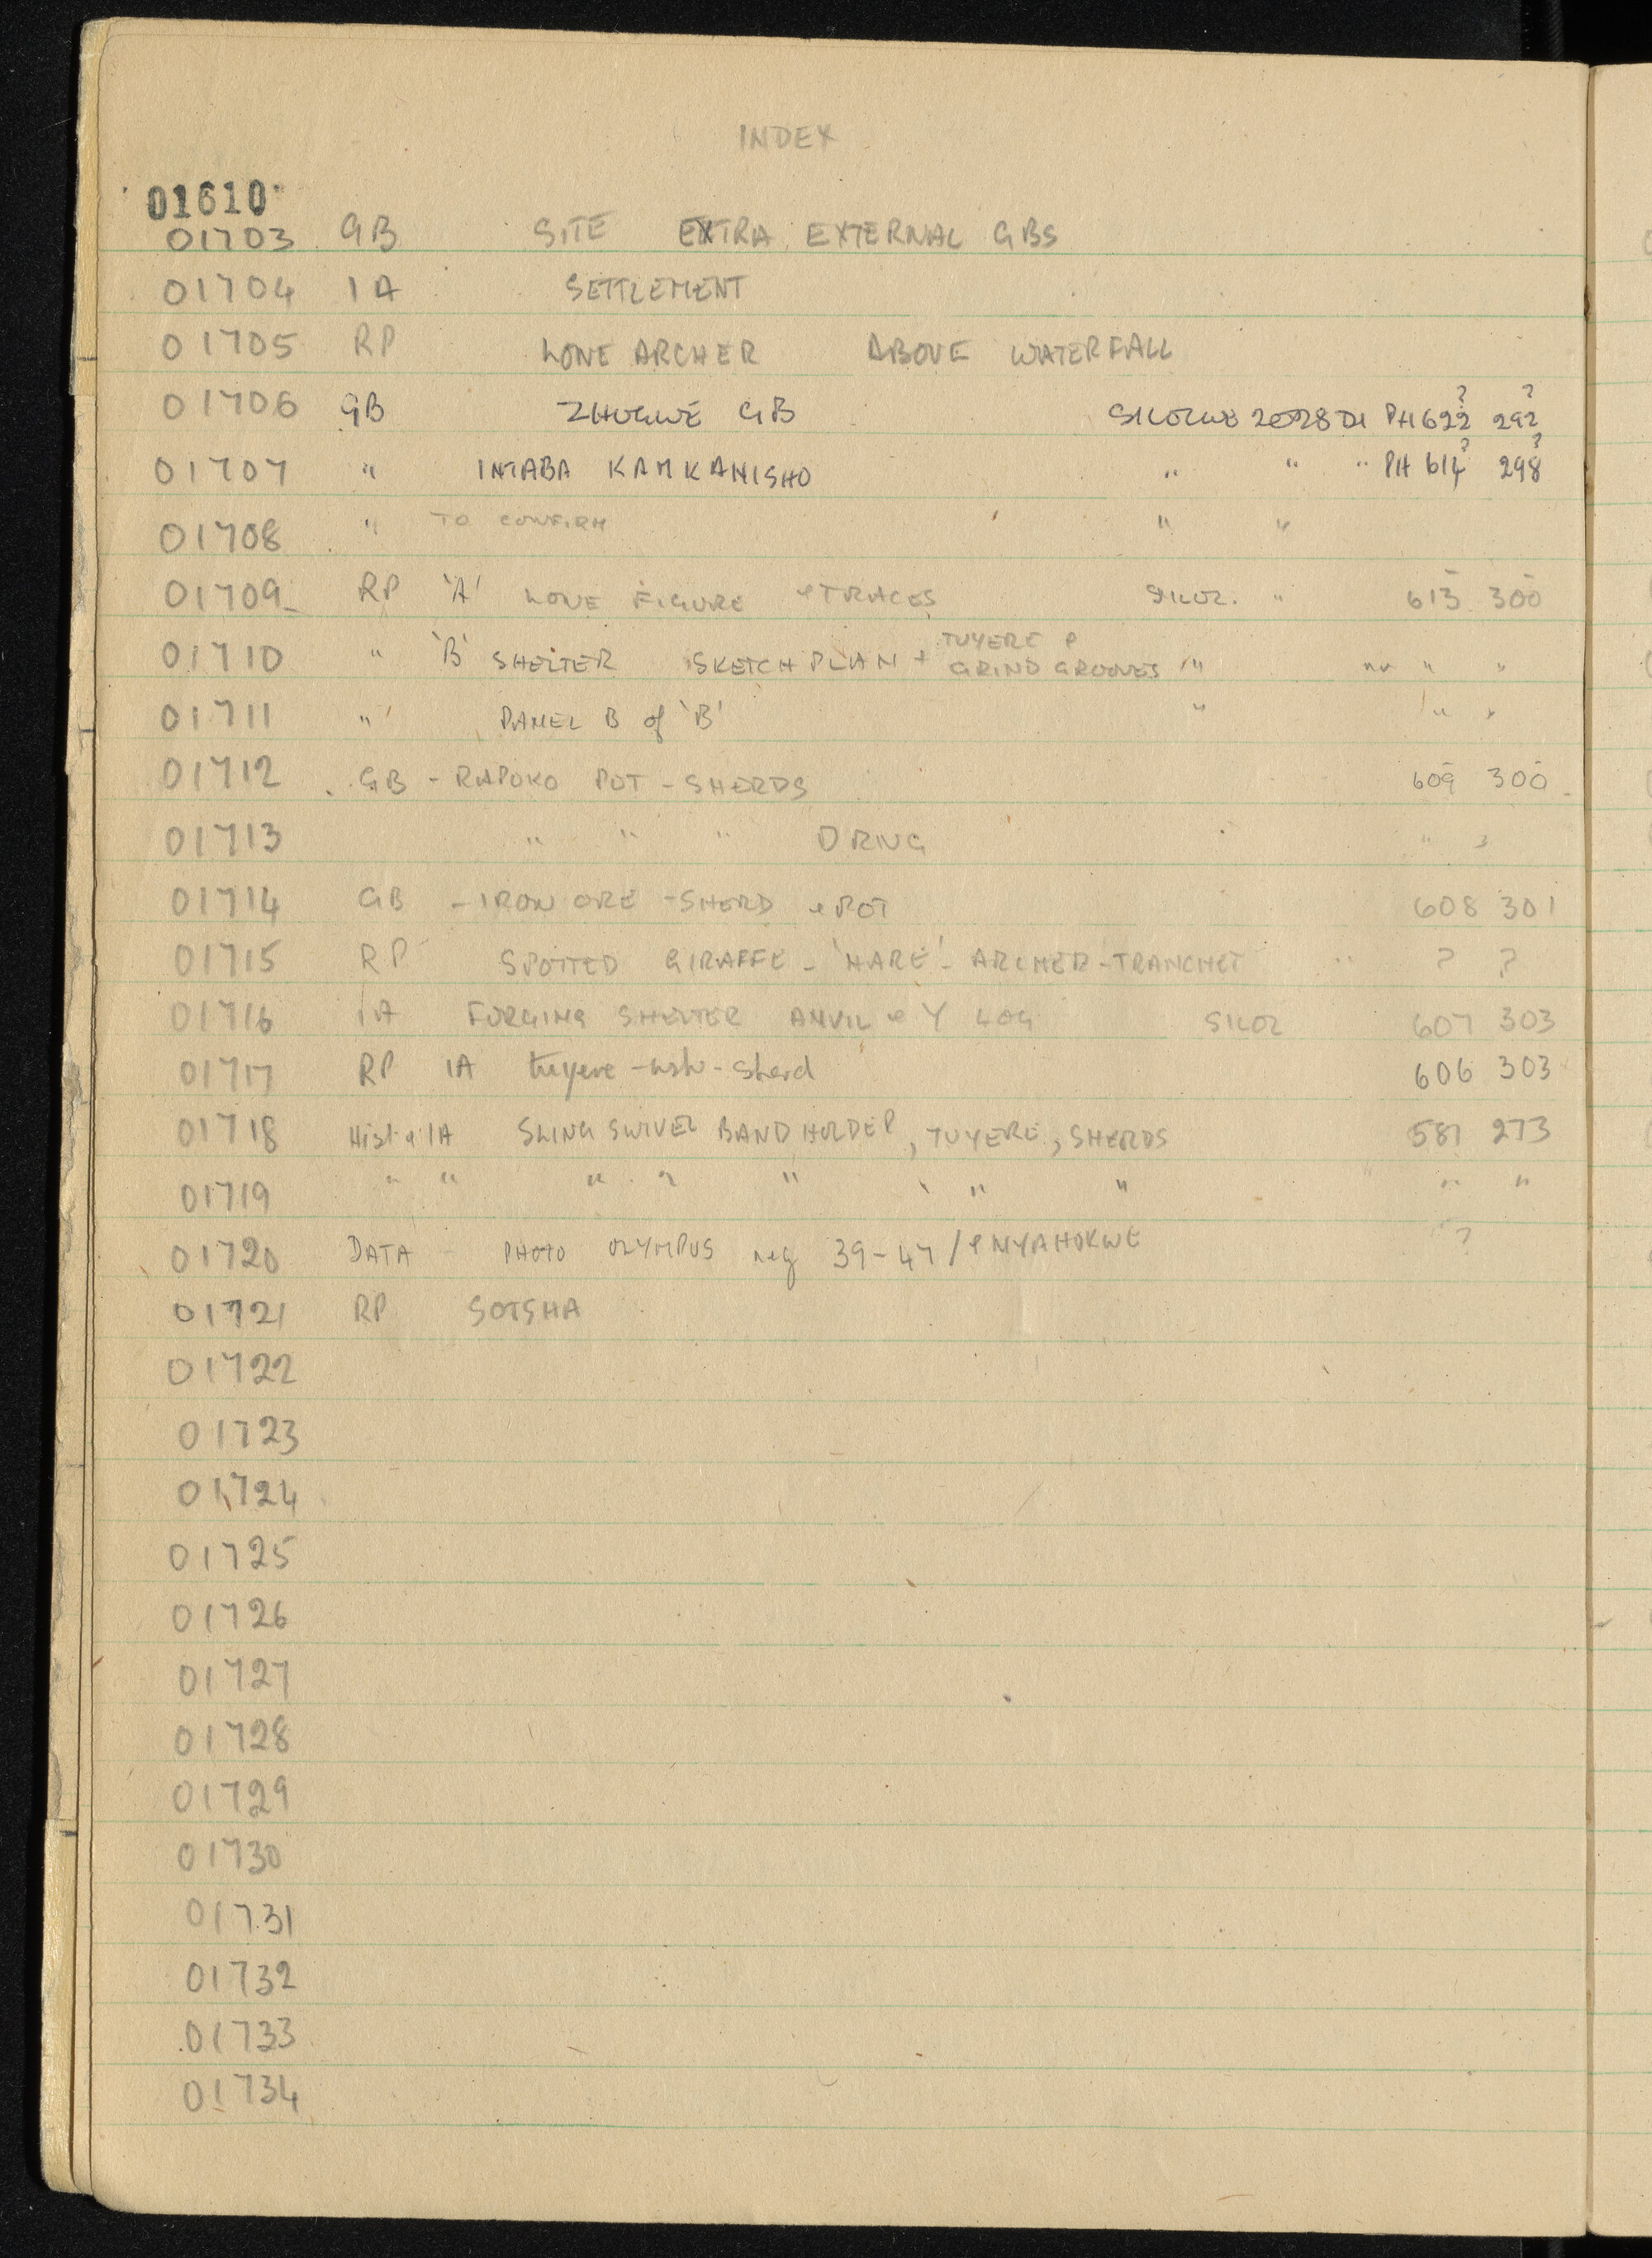 INDEX
01610
01703 GB SITE EXTRA EXTERNAL GBS
01704 IA SETTLEMENT
01705 RP LONE ARCHER ABOVE WATERFALL
01706 GB ZHUGWE GB SILOZWE 2028 D1 PH 622? 292?
01707 " INTABA KAMKANISHO " " " PH 614? 298?
01708 " TO CONFIRM " "
01709 RP 'A' LONE FIGURE & TRACES SILOZ. " 613 300
01710 " 'B' SHELTER SKETCH PLAN + TUYERE P GRIND GROOVES " " " "
01711 " PANEL B of 'B' " " "
01712 GB - RAPOKO POT - SHERDS 609 300
01713 " " " DRNG " "
01714 GB - IRON ORE - SHERD & POT 608 301
01715 RP SPOTTED GIRAFFE - 'HARE' - ARCHER - TRANCHET " ? ?
01716 IA FORGING SHELTER ANVIL & Y LOG SILOZ 607 303
01717 RP IA tuyere - - Sherd 606 303
01718 Hist & IA SLING SWIVEL BAND HOLDER, TUYERE, SHERDS 581 273
01719 " " " " " " " " " "
01720 DATA PHOTO OLYMPUS neg 39-47 / & NYAHOKWE ?
01721 RP SOTSHA
01722
01723
01724
01725
01726
01727
01728
01729
01730
01731
01732
01733
01734